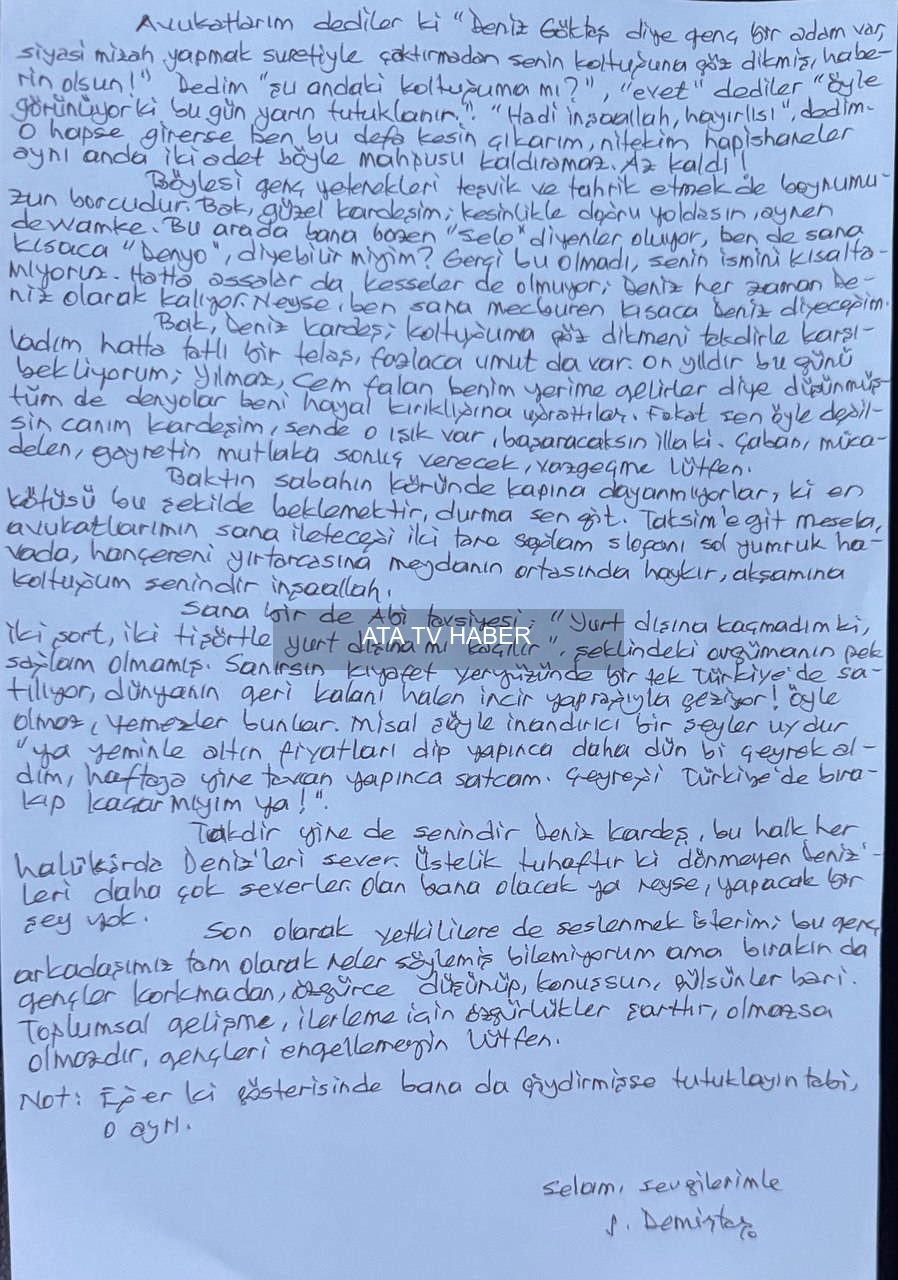 Avukatlarım dediler ki "Deniz Göktaş diye genç bir adam var,
siyasi mizah yapmak suretiyle çaktırmadan senin koltuğuna göz dikmiş, habe-
rin olsun!" Dedim "şu andaki koltuğuma mı?", "evet" dediler "öyle
görünüyor ki bu gün yarın tutuklanır." "Hadi inşaallah, hayırlısı", dedim.
O hapse girerse ben bu defa kesin çıkarım, nitekim hapishaneler
aynı anda iki adet böyle mahpusu kaldıramaz. Az kaldı!
Böylesi genç yetenekleri teşvik ve tahrik etmek de boynumu-
zun borcudur. Bak, güzel kardeşim; kesinlikle doğru yoldasın, aynen
dewamke. Bu arada bana bazen "Selo" diyenler oluyor, ben de sana
kısaca "Denyo", diyebilir miyim? Gerçi bu olmadı, senin ismini kısalta-
mıyoruz. Hatta assalar da kesseler de olmuyor; Deniz her zaman De-
niz olarak kalıyor. Neyse, ben sana mecburen kısaca Deniz diyeceğim.
Bak, Deniz kardeş; koltuğuma göz dikmeni takdirle karşı-
ladım hatta tatlı bir telaş, fazlaca umut da var. On yıldır bu günü
bekliyorum; Yılmaz, Cem falan benim yerime gelirler diye düşünmüş-
tüm de denyolar beni hayal kırıklığına uğrattılar. Fakat sen öyle değil-
sin canım kardeşim, sende o ışık var, başaracaksın illaki. Çaban, müca-
delen, gayretin mutlaka sonuç verecek, vazgeçme lütfen.
Baktın sabahın köründe kapına dayanmıyorlar, ki en
kötüsü bu şekilde beklemektir, durma sen git. Taksim'e git mesela,
avukatlarımın sana ileteceği iki tane sağlam sloganı sol yumruk ha-
vada, hançereni yırtarcasına meydanın ortasında haykır, akşamına
koltuğum senindir inşaallah.
Sana bir de Abi tavsiyesi: "Yurt dışına kaçmadım ki,
iki şort, iki tişörtle yurt dışına mı kaçılır", şeklindeki argümanın pek
sağlam olmamış. Sanırsın kıyafet yeryüzünde bir tek Türkiye'de sa-
tılıyor, dünyanın geri kalanı halen incir yaprağıyla geziyor! Öyle
olmaz, yemezler bunlar. Misal şöyle inandırıcı bir şeyler uydur
"ya yeminle altın fiyatları dip yapınca daha dün bi çeyrek al-
dım, haftaya yine tavan yapınca satcam. Çeyreği Türkiye'de bıra-
kıp kaçar mıyım ya!".
Takdir yine de senindir Deniz kardeş, bu halk her
halükarda Deniz'leri sever. Üstelik tuhaftır ki dönmeyen Deniz'-
leri daha çok severler. Olan bana olacak ya neyse, yapacak bir
şey yok.
Son olarak yetkililere de seslenmek isterim; bu genç
arkadaşımız tam olarak neler söylemiş bilemiyorum ama bırakın da
gençler korkmadan, özgürce düşünüp, konuşsun, gülsünler bari.
Toplumsal gelişme, ilerleme için özgürlükler şarttır, olmazsa
olmazdır, gençleri engellemeyin lütfen.
Not: Eğer ki gösterisinde bana da giydirmişse tutuklayın tabi,
o ayrı.
Selam, sevgilerimle
S. Demirtaş
ATA TV HABER